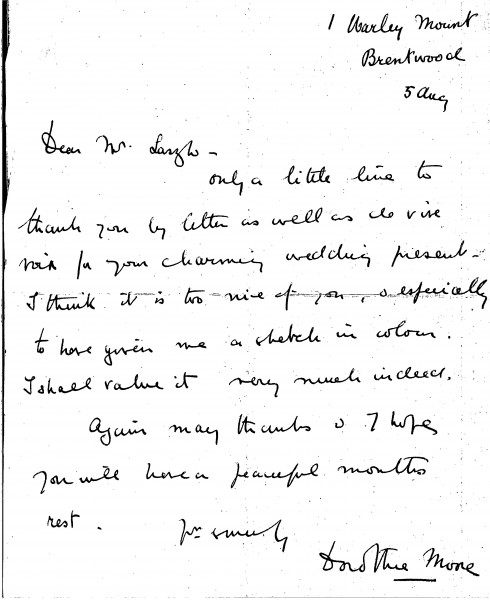 1 Warley Mount
Brentwood
5 Aug
Dear Mr. Laszlo -
only a little line to
thank you by letter as well as de vive
voix for your charming wedding present -
I think it is too nice of you, & especially
to have given me a sketch in colour.
I shall value it very much indeed.
Again many thanks & I hope
you will have a peaceful months
rest.
Yrs sincerely
Dorothie